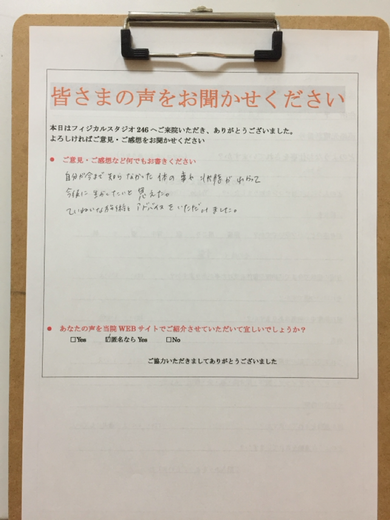 皆さまの声をお聞かせください
本日はフィジカルスタジオ246へご来院いただき、ありがとうございました。
よろしければご意見・ご感想をお聞かせください
● ご意見・ご感想など何でもお書きください
自分が今まで知らなかった体の事や状態がわかって
今後に生かしたいと思えた。
ていねいな施術とアドバイスをいただけました。
● あなたの声を当院WEBサイトでご紹介させていただいて宜しいでしょうか？
□Yes ☑匿名なら Yes □No
ご協力いただきましてありがとうございました